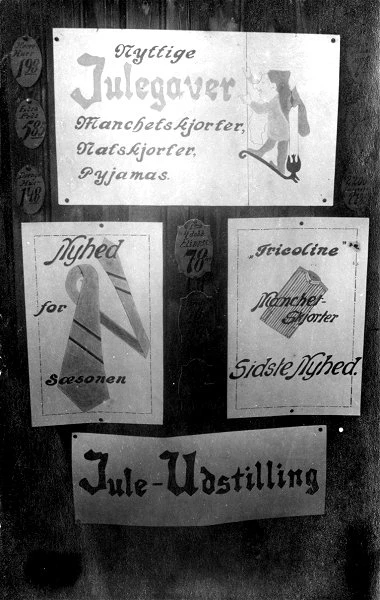 Nyttige
Julegaver
Manchetskjorter,
Natskjorter,
Pyjamas.
Nyhed
for
Sæsonen
78
„Tricoline"
Manchet-
Skjorter
Sidste Nyhed.
Jule-Udstilling